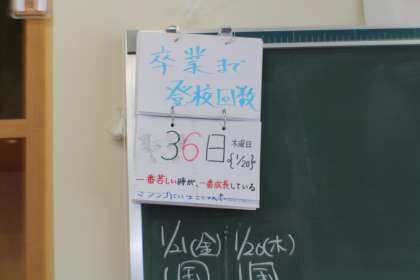 卒業まで
登校回数
36日
木曜日
{1/20}
一番苦しい時が、一番成長している
1/21(金)
1/20(木)
1国
1国